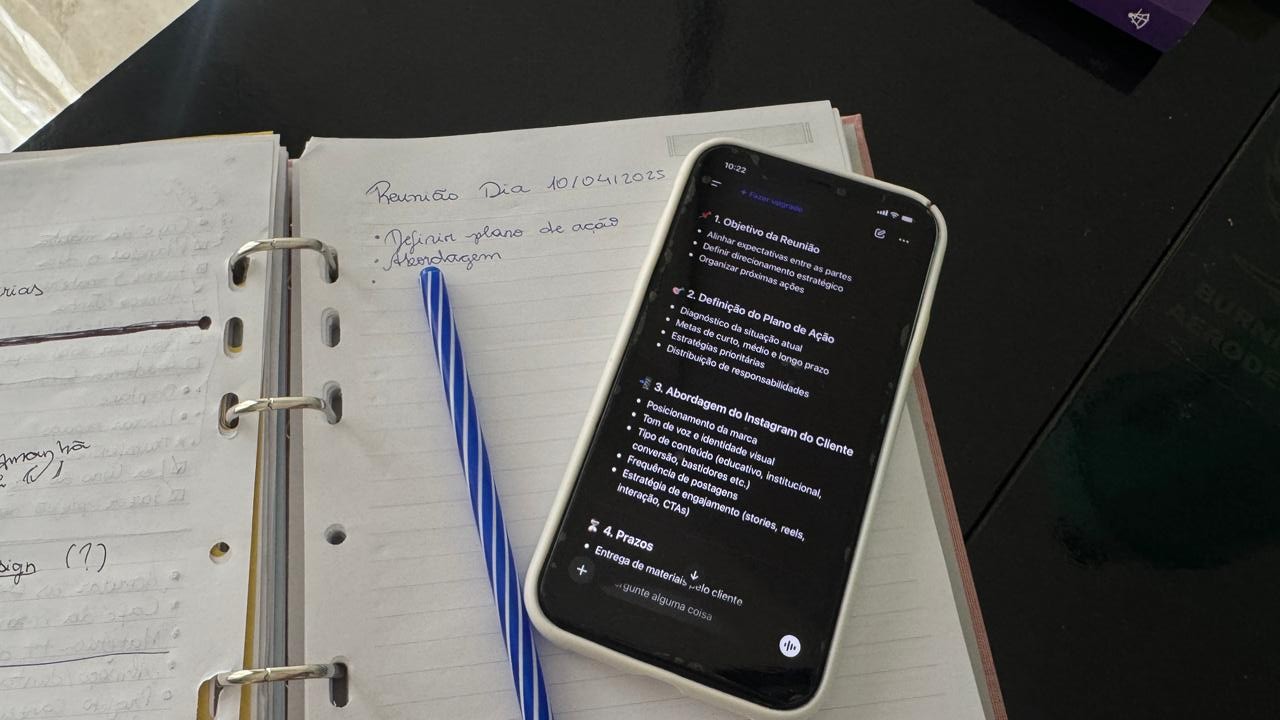 Reunião Dia 10/04/2025
• Definir plano de ação
• Abordagem
•
sign (?)
10:22
+ Fazer upgrade
1. Objetivo da Reunião
• Alinhar expectativas entre as partes
• Definir direcionamento estratégico
• Organizar próximas ações
2. Definição do Plano de Ação
• Diagnóstico da situação atual
• Metas de curto, médio e longo prazo
• Estratégias prioritárias
• Distribuição de responsabilidades
3. Abordagem do Instagram do Cliente
• Posicionamento da marca
• Tom de voz e identidade visual
• Tipo de conteúdo (educativo, institucional,
conversão, bastidores etc.)
• Frequência de postagens
• Estratégia de engajamento (stories, reels,
interação, CTAs)
4. Prazos
• Entrega de materiais pelo cliente
ergunte alguma coisa